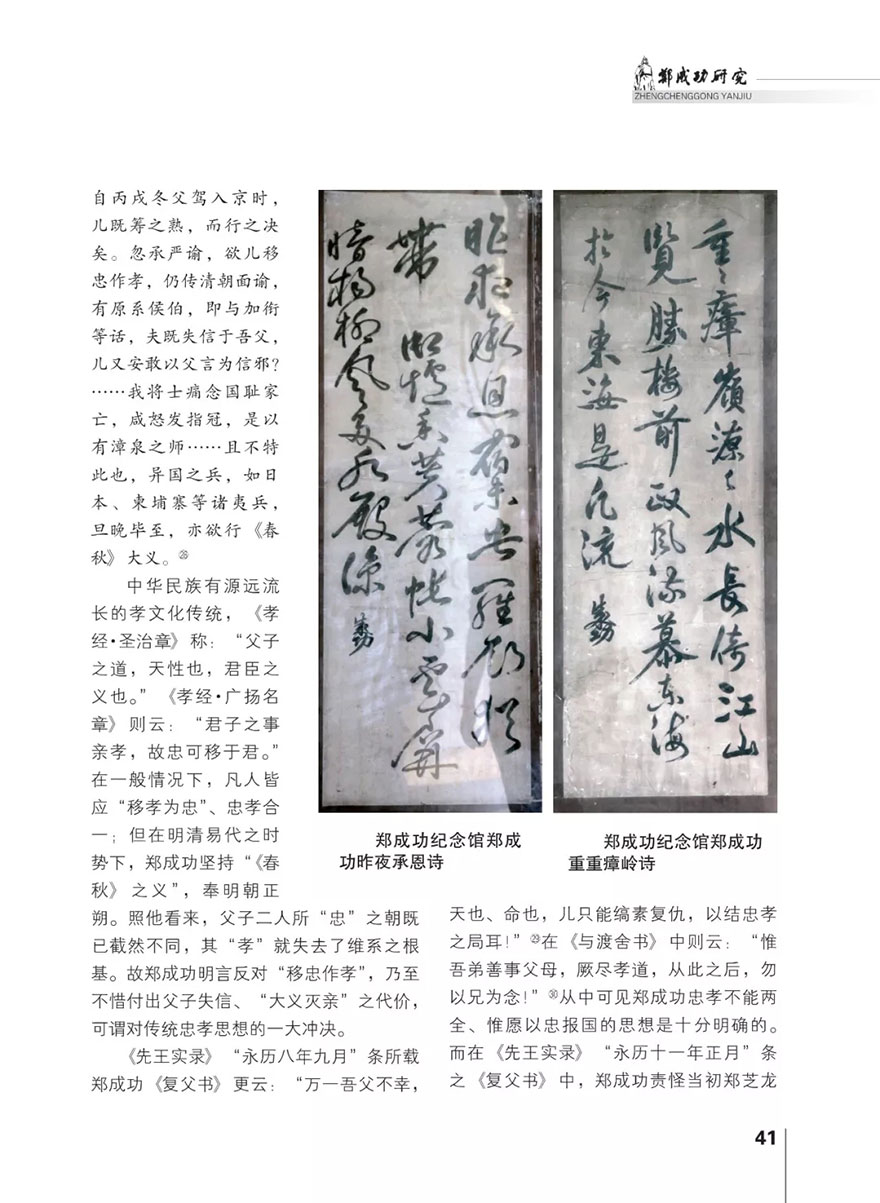 郑成功研究
ZHENGCHENGGONG YANJIU
自丙戌冬父驾入京时，
儿既筹之熟，而行之决
矣。忽承严谕，欲儿移
忠作孝，仍传清朝面谕，
有原系侯伯，即与加衔
等话，夫既失信于吾父，
儿又安敢以父言为信邪？
……我将士痛念国耻家
亡，咸怒发指冠，是以
有漳泉之师……且不特
此也，异国之兵，如日
本、柬埔寨等诸夷兵，
旦晚毕至，亦欲行《春
秋》大义。㉘
中华民族有源远流
长的孝文化传统，《孝
经·圣治章》称：“父子
之道，天性也，君臣之
义也。”《孝经·广扬名
章》则云：“君子之事
亲孝，故忠可移于君。”
在一般情况下，凡人皆
应“移孝为忠”、忠孝合
一；但在明清易代之时
势下，郑成功坚持“《春
秋》之义”，奉明朝正
朔。照他看来，父子二人所“忠”之朝既
已截然不同，其“孝”就失去了维系之根
基。故郑成功明言反对“移忠作孝”，乃至
不惜付出父子失信、“大义灭亲”之代价，
可谓对传统忠孝思想的一大冲决。
《先王实录》“永历八年九月”条所载
郑成功《复父书》更云：“万一吾父不幸，
昨夜承恩宿未央羅衣猶
帶御爐香芙蓉帳小雲屏
暗楊柳風多水殿涼
郑成功纪念馆郑成
功昨夜承恩诗
重〻瘴嶺潦〻水長倚江山
覽勝樓前政風流慕東海
於今東海是凡流
郑成功纪念馆郑成功
重重瘴岭诗
天也、命也，儿只能缟素复仇，以结忠孝
之局耳！”㉙在《与渡舍书》中则云：“惟
吾弟善事父母，厥尽孝道，从此之后，勿
以兄为念！”㉚从中可见郑成功忠孝不能两
全、惟愿以忠报国的思想是十分明确的。
而在《先王实录》“永历十一年正月”条
之《复父书》中，郑成功责怪当初郑芝龙
41